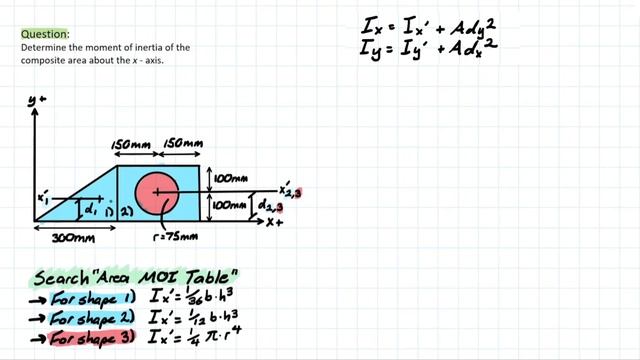 Question:
Determine the moment of inertia of the
composite area about the x - axis.
Ix = Ix' + Ady²
Iy = Iy' + Adx²
y+
150mm 150mm
100mm
100mm
x'1
x'2,3
d1
1) 2)
d2,3
x+
300mm
r=75mm
Search "Area MOI Table"
→ For shape 1) Ix' = 1/36 b·h³
→ For shape 2) Ix' = 1/12 b·h³
→ For shape 3) Ix' = 1/4 π·r⁴